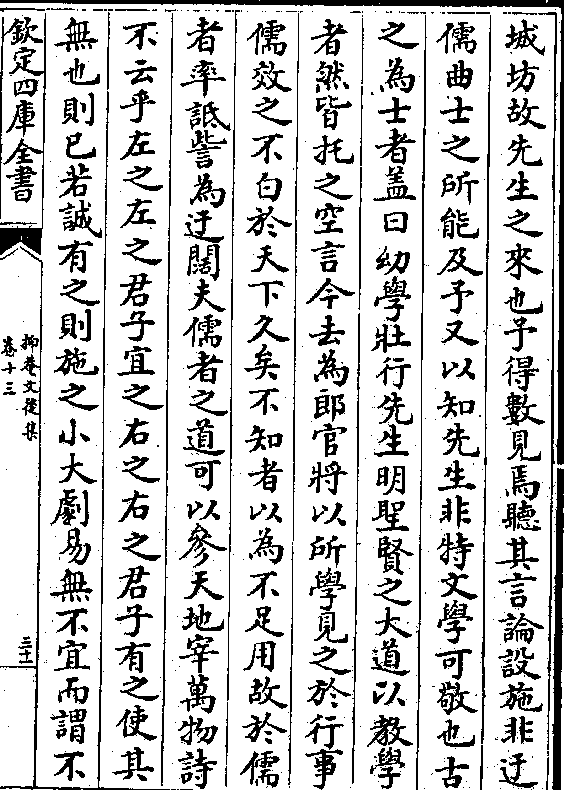 城坊故先生之來也予得數見焉聽其言論設施非迂
儒曲士之所能及予又以知先生非特文學可敬也古
之為士者盖曰幼學壯行先生明聖賢之大道以教學
者然皆托之空言今去為郎官將以所學見之於行事
儒效之不白於天下久矣不知者以為不足用故於儒
者率詆訾為迂闊夫儒者之道可以參天地宰萬物詩
不云乎左之左之君子宜之右之右之君子有之使其
無也則已若誠有之則施之小大劇易無不宜而謂不
欽定四庫全書
抑菴文後集
卷十三